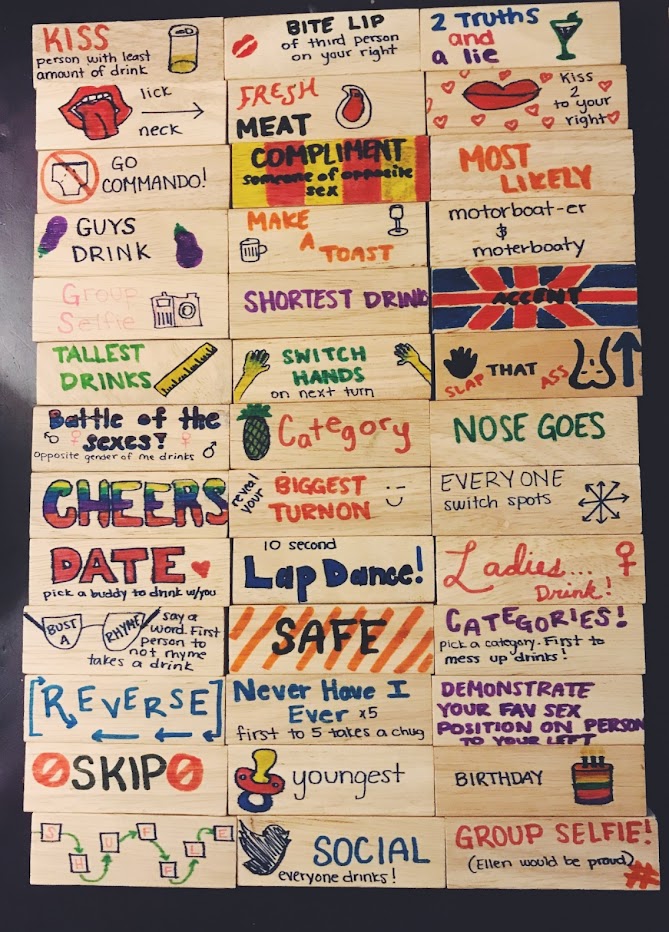 KISS
person with least
amount of drink
BITE LIP
of third person
on your right
2 Truths
and
a lie
lick
neck
FRESH
MEAT
Kiss
2
to your
right
GO
COMMANDO!
COMPLIMENT
someone of opposite
sex
MOST
LIKELY
GUYS
DRINK
MAKE
A
TOAST
motorboat-er
&
moterboaty
Group
Selfie
SHORTEST DRINK
ACCENT
TALLEST
DRINKS
SWITCH
HANDS
on next turn
SLAP THAT ASS
Battle of the
sexes!
opposite gender of me drinks
Category
NOSE GOES
CHEERS
reveal
your
BIGGEST
TURNON
EVERYONE
switch spots
DATE
pick a buddy to drink w/you
10 second
Lap Dance!
Ladies...
Drink!
BUST
A
RHYME
say a
word. First
person to
not rhyme
takes a drink
SAFE
CATEGORIES!
pick a category. First to
mess up drinks!
[REVERSE]
Never Have I
Ever x5
first to 5 takes a chug
DEMONSTRATE
YOUR FAV SEX
POSITION ON PERSON
TO YOUR LEFT
SKIP
youngest
BIRTHDAY
SHUFFLE
SOCIAL
everyone drinks!
GROUP SELFIE!
(Ellen would be proud)
#